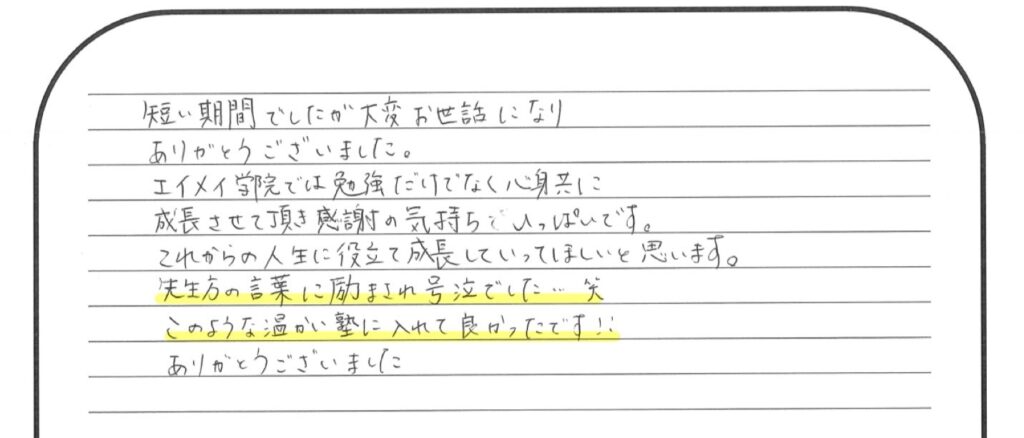 短い期間でしたが大変お世話になり
ありがとうございました。
エイメイ学院では勉強だけでなく心身共に
成長させて頂き感謝の気持ちでいっぱいです。
これからの人生に役立て成長していってほしいと思います。
先生方の言葉に励まされ号泣でした…笑
このような温かい塾に入れて良かったです!!
ありがとうございました